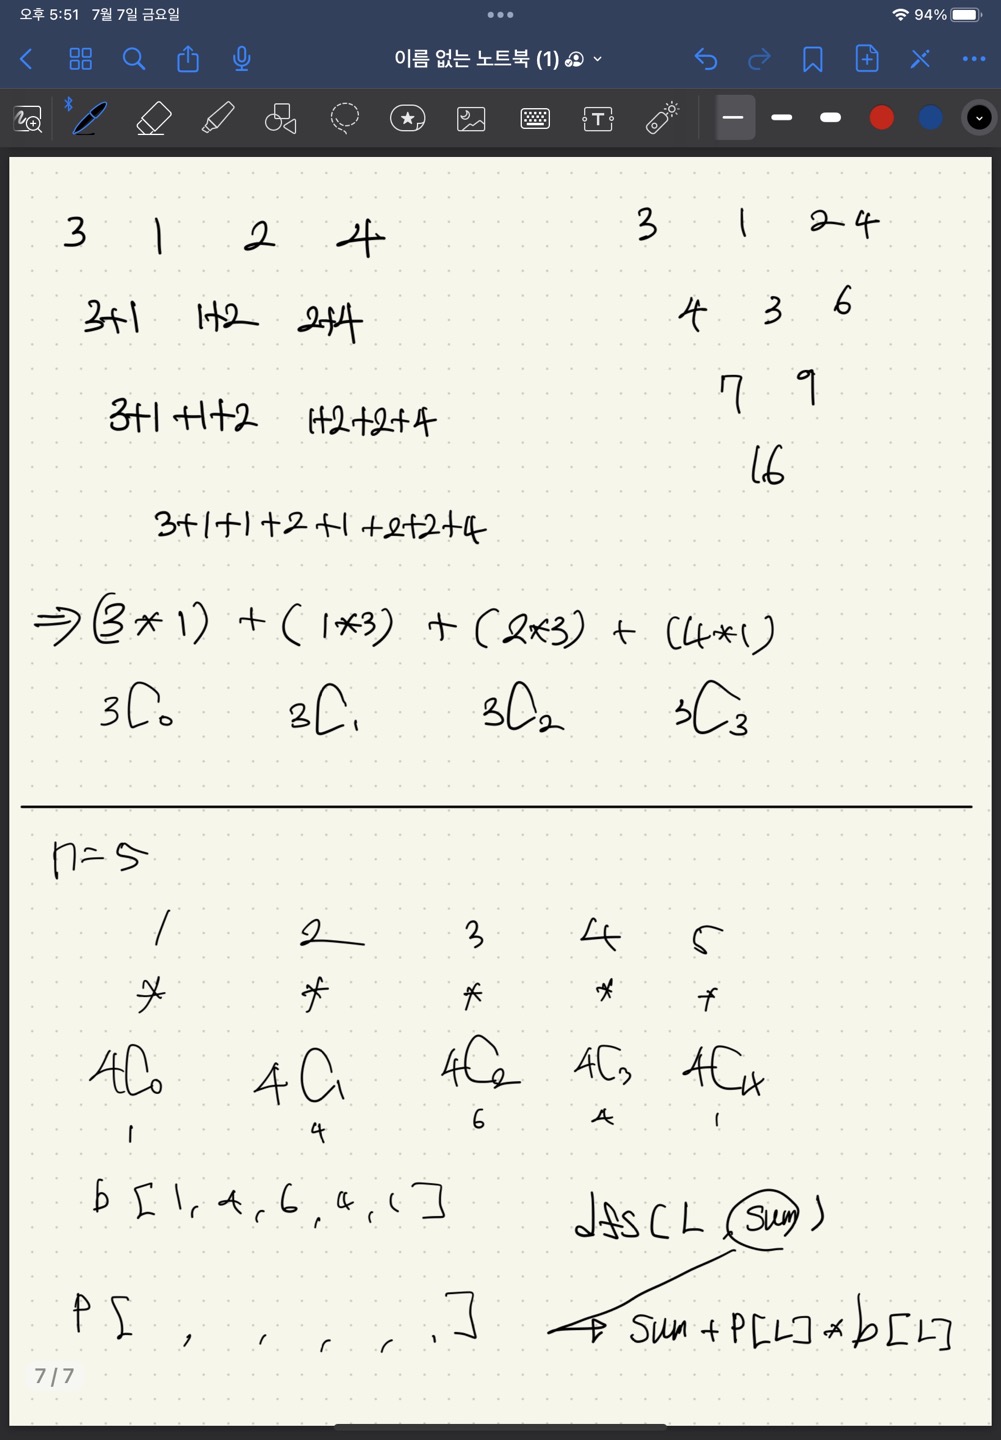 오후 5:51 7월 7일 금요일 94%
이름 없는 노트북 (1)
3 1 2 4
3+1 1+2 2+4
3+1+1+2 1+2+2+4
3+1+1+2+1+2+2+4
3 1 2 4
4 3 6
7 9
16
⇒ (3*1) + (1*3) + (2*3) + (4*1)
3C0 3C1 3C2 3C3
n=5
1 2 3 4 5
* * * * *
4C0 4C1 4C2 4C3 4C4
1 4 6 4 1
b [1, 4, 6, 4, 1]
dfs(L, sum)
P[ , , , , , ]
→ sum + P[L] * b[L]
7 / 7